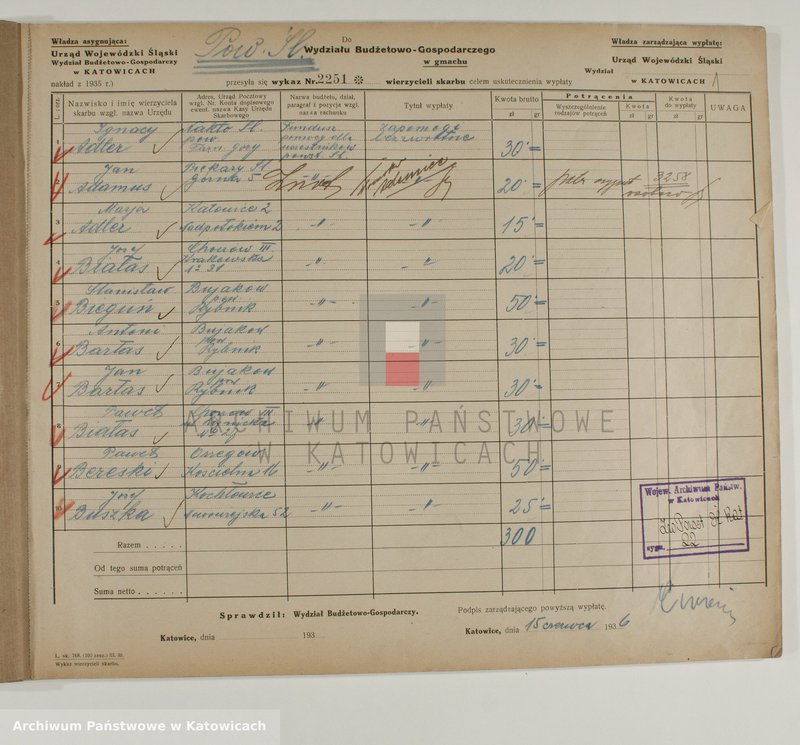 Władza asygnująca:
Urząd Wojewódzki Śląski
Wydział Budżetowo-Gospodarczy
w KATOWICACH
nakład z 1935 r.)
Pow. Śl.
Do
Wydziału Budżetowo-Gospodarczego
w gmachu
Władza zarządzająca wypłatę:
Urząd Wojewódzki Śląski
Wydział
w KATOWICACH
przesyła się wykaz Nr. 2251 wierzycieli skarbu celem uskutecznienia wypłaty
L. porz.
Nazwisko i imię wierzyciela
skarbu wzgl. nazwa Urzędu
Adres, Urząd Pocztowy
wzgl. Nr. Konta dopisowego
ewent. nazwa Kasy Urzędu
Skarbowego
Nazwa budżetu, dział,
paragraf i pozycja wzgl.
nazwa rachunku
Tytuł wypłaty
Kwota brutto
zł gr
Potrącenia
Wyszczególnienie
rodzajów potrąceń
Kwota
zł gr
Kwota
do wypłaty
zł gr
UWAGA
1 Ignacy
Adler
Nakło Śl.
pow.
Tarn. Góry
Fundusz
pomocy dla
uczestników
powst. Śl.
zapomoga
bezzwrotna
30 =
2 Jan
Adamus
Piekary Śl.
Górna 5
20 =
3258
3 Marja
Adler
Katowice 2
15 =
4 Józef
Białas
Chorzów III
Krakowska
20 =
5 Stanisław
Bieguń
Bujaków
pow.
Rybnik
50 =
6 Antoni
Bartas
Bujaków
pow.
Rybnik
30 =
7 Jan
Bartas
Bujaków
pow.
Rybnik
30 =
8 Paweł
Białas
Chorzów III
30 =
9 Paweł
Bereski
Orzegów
Kościelna 16
50 =
10 Józef
Buszka
Kochłowice
25 =
300
Razem . . . . .
Od tego suma potrąceń
Suma netto . . . . . .
Wojew. Archiwum Państw.
w Katowicach
sygn. 22
Sprawdził: Wydział Budżetowo-Gospodarczy.
Podpis zarządzającego powyższą wypłatę.
Katowice, dnia 193
Katowice, dnia 15 czerwca 1936
Wykaz wierzycieli skarbu.
ARCHIWUM PAŃSTWOWE
W KATOWICACH
Archiwum Państwowe w Katowicach